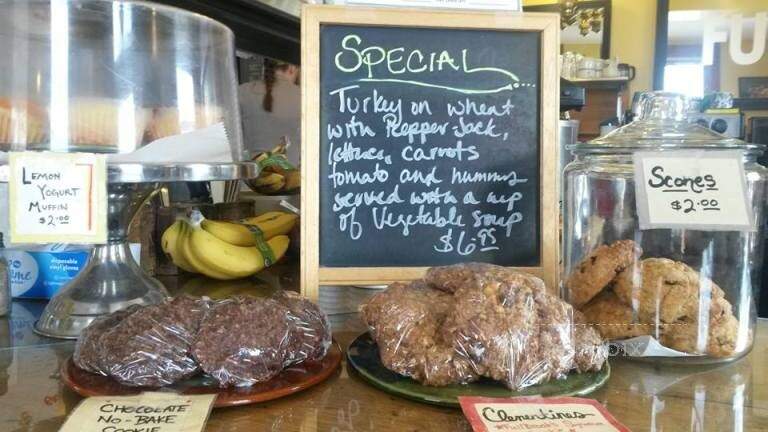 SPECIAL
Turkey on wheat
with Pepper Jack,
lettuce, carrots
tomato and hummus
served with a cup
of Vegetable soup
$6.95
LEMON
YOGURT
MUFFIN
$2.00
Scones
$2.00
FU
CHOCOLATE
NO-BAKE
COOKIE
Clementines